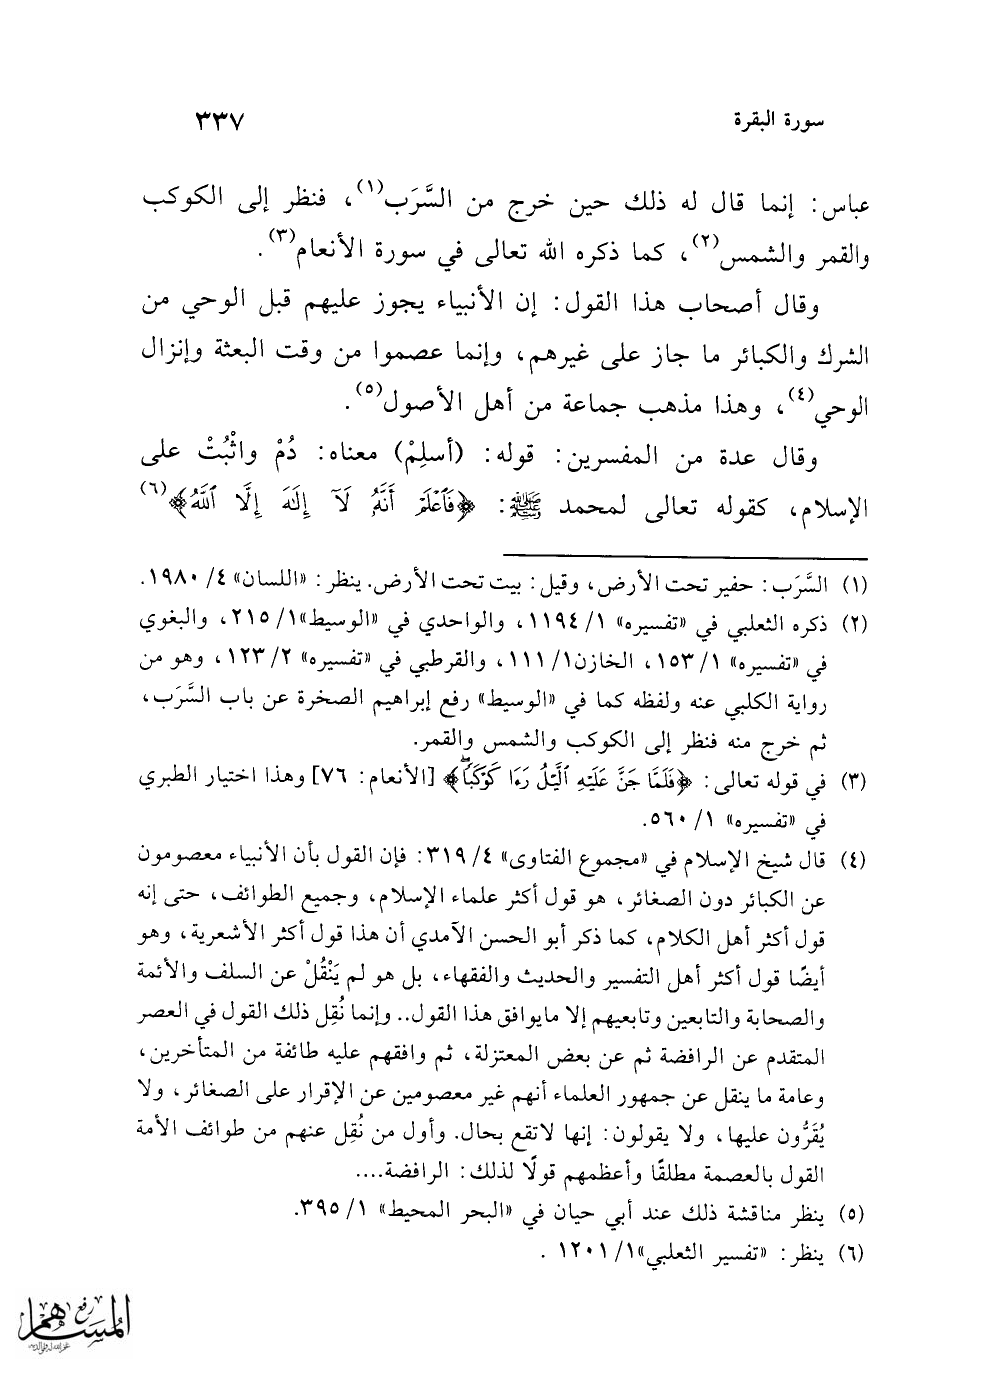 سورة البقرة ٣٣٧
عباس: إنما قال له ذلك حين خرج من السَّرَب(١)، فنظر إلى الكوكب
والقمر والشمس(٢)، كما ذكره الله تعالى في سورة الأنعام(٣).
وقال أصحاب هذا القول: إن الأنبياء يجوز عليهم قبل الوحي من
الشرك والكبائر ما جاز على غيرهم، وإنما عصموا من وقت البعثة وإنزال
الوحي(٤)، وهذا مذهب جماعة من أهل الأصول(٥).
وقال عدة من المفسرين: قوله: (أسلِمْ) معناه: دُمْ واثْبُتْ على
الإسلام، كقوله تعالى لمحمد ﷺ: ﴿فَٱعْلَمْ أَنَّهُۥ لَآ إِلَٰهَ إِلَّا ٱللَّهُ﴾(٦)
(١) السَّرَب: حفير تحت الأرض، وقيل: بيت تحت الأرض. ينظر: «اللسان» ٤/ ١٩٨٠.
(٢) ذكره الثعلبي في «تفسيره» ١/ ١١٩٤، والواحدي في «الوسيط»١/ ٢١٥، والبغوي
في «تفسيره» ١/ ١٥٣، الخازن١/ ١١١، والقرطبي في «تفسيره» ٢/ ١٢٣، وهو من
رواية الكلبي عنه ولفظه كما في «الوسيط» رفع إبراهيم الصخرة عن باب السَّرَب،
ثم خرج منه فنظر إلى الكوكب والشمس والقمر.
(٣) في قوله تعالى: ﴿فَلَمَّا جَنَّ عَلَيْهِ ٱلَّيْلُ رَءَا كَوْكَبًاۖ﴾ [الأنعام: ٧٦] وهذا اختيار الطبري
في «تفسيره» ١/ ٥٦٠.
(٤) قال شيخ الإسلام في «مجموع الفتاوى» ٤/ ٣١٩: فإن القول بأن الأنبياء معصومون
عن الكبائر دون الصغائر، هو قول أكثر علماء الإسلام، وجميع الطوائف، حتى إنه
قول أكثر أهل الكلام، كما ذكر أبو الحسن الآمدي أن هذا قول أكثر الأشعرية، وهو
أيضًا قول أكثر أهل التفسير والحديث والفقهاء، بل هو لم يَنْقُلْ عن السلف والأئمة
والصحابة والتابعين وتابعيهم إلا مايوافق هذا القول.. وإنما نُقِل ذلك القول في العصر
المتقدم عن الرافضة ثم عن بعض المعتزلة، ثم وافقهم عليه طائفة من المتأخرين،
وعامة ما ينقل عن جمهور العلماء أنهم غير معصومين عن الإقرار على الصغائر، ولا
يُقَرُّون عليها، ولا يقولون: إنها لاتقع بحال. وأول من نُقِل عنهم من طوائف الأمة
القول بالعصمة مطلقًا وأعظمهم قولًا لذلك: الرافضة....
(٥) ينظر مناقشة ذلك عند أبي حيان في «البحر المحيط» ١/ ٣٩٥.
(٦) ينظر: «تفسير الثعلبي»١/ ١٢٠١ .
رفع
المساهم